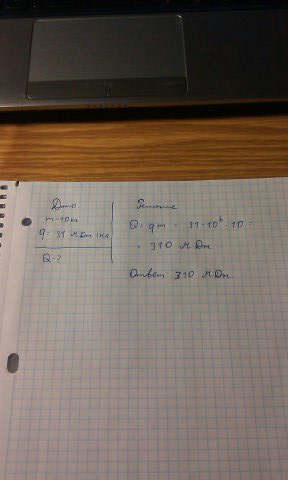 Дано
m = 10 кг
q = 31 МДж/кг
Q - ?
Решение
Q = qm = 31·10⁶·10 =
= 310 МДж
Ответ 310 МДж.